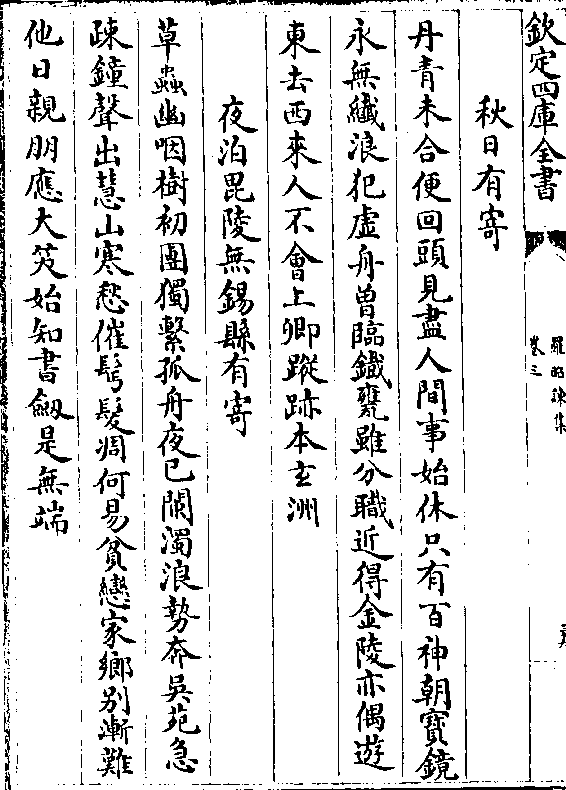 欽定四庫全書
羅昭諫集
卷三
秋日有寄
丹青未合便回頭見盡人間事始休只有百神朝寳鏡
永無纎浪犯虚舟曽臨鐡甕雖分職近得金陵亦偶遊
東去西來人不會上卿蹤跡本玄洲
夜泊毘陵無錫縣有寄
草蟲幽咽樹初團獨繫孤舟夜已闌濁浪勢奔吳苑急
疎鐘聲出慧山寒愁催髩髮凋何易貧戀家鄉别漸難
他日親朋應大笑始知書劒是無端